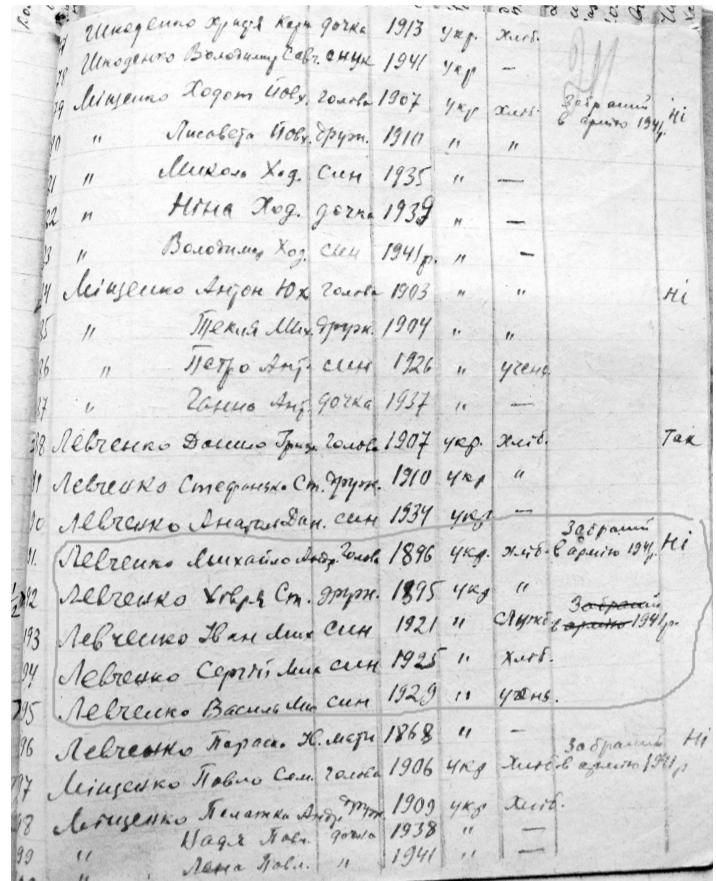 Шкоденко Христя Карп. дочка 1913 укр. хліб.
78 Шкоденко Володимир Сав. онук 1941 укр —
79 Міщенко Ходот Йовх. голова 1907 укр хліб. Забраний в армію 1941р. Ні
80 " Лисавета Йовх. друж. 1910 " "
81 " Микола Ход. син 1935 " —
82 " Ніна Ход. дочка 1939 " —
83 " Володимир Ход. син 1941р. " —
84 Міщенко Антон Юх. голова 1903 " " Ні
85 " Текля Мих. друж. 1904 " "
86 " Петро Ант. син 1926 " учень
87 " Ганна Ант. дочка 1937 " —
88 Левченко Данило Гриц. голова 1907 укр. хліб. Так
Левченко Ст. друж. 1910 укр "
90 Левченко Анатол Дан. син 1934 укр —
91. Левченко Михайло Андр. Голова 1896 укр хліб. Забраний в армію 1941р. Ні
92 Левченко Ховря Ст. друж. 1895 укр "
193 Левченко Іван Мих син 1921 " служб. Забраний в армію 1941р.
94 Левченко Сергій Мих син 1925 " хліб.
95 Левченко Василь Мих син 1929 " учень.
96 Левченко Параска Ів. мати 1868 " —
97 Міщенко Павло Сем. голова 1906 укр хліб. Забраний в армію 1941р Ні
98 Міщенко Пелажка Андр. друж. 1909 укр хліб.
99 " Надя Павл. дочка 1938 " —
" Лена Павл. " 1941 " —